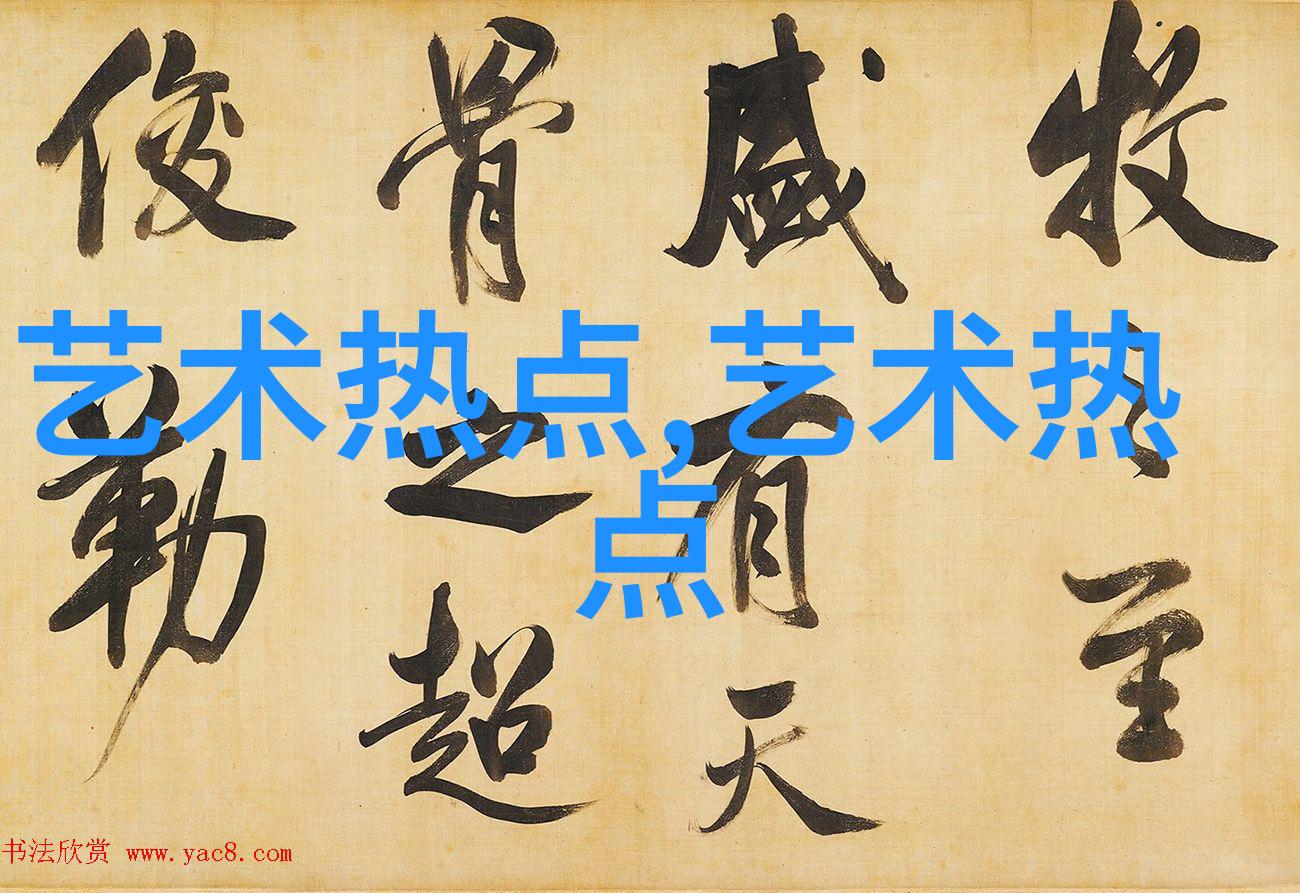 牧之至
盛有天
骨之超
俊勒
艺术热点,艺术热
点
书法欣赏 www.yac8.com